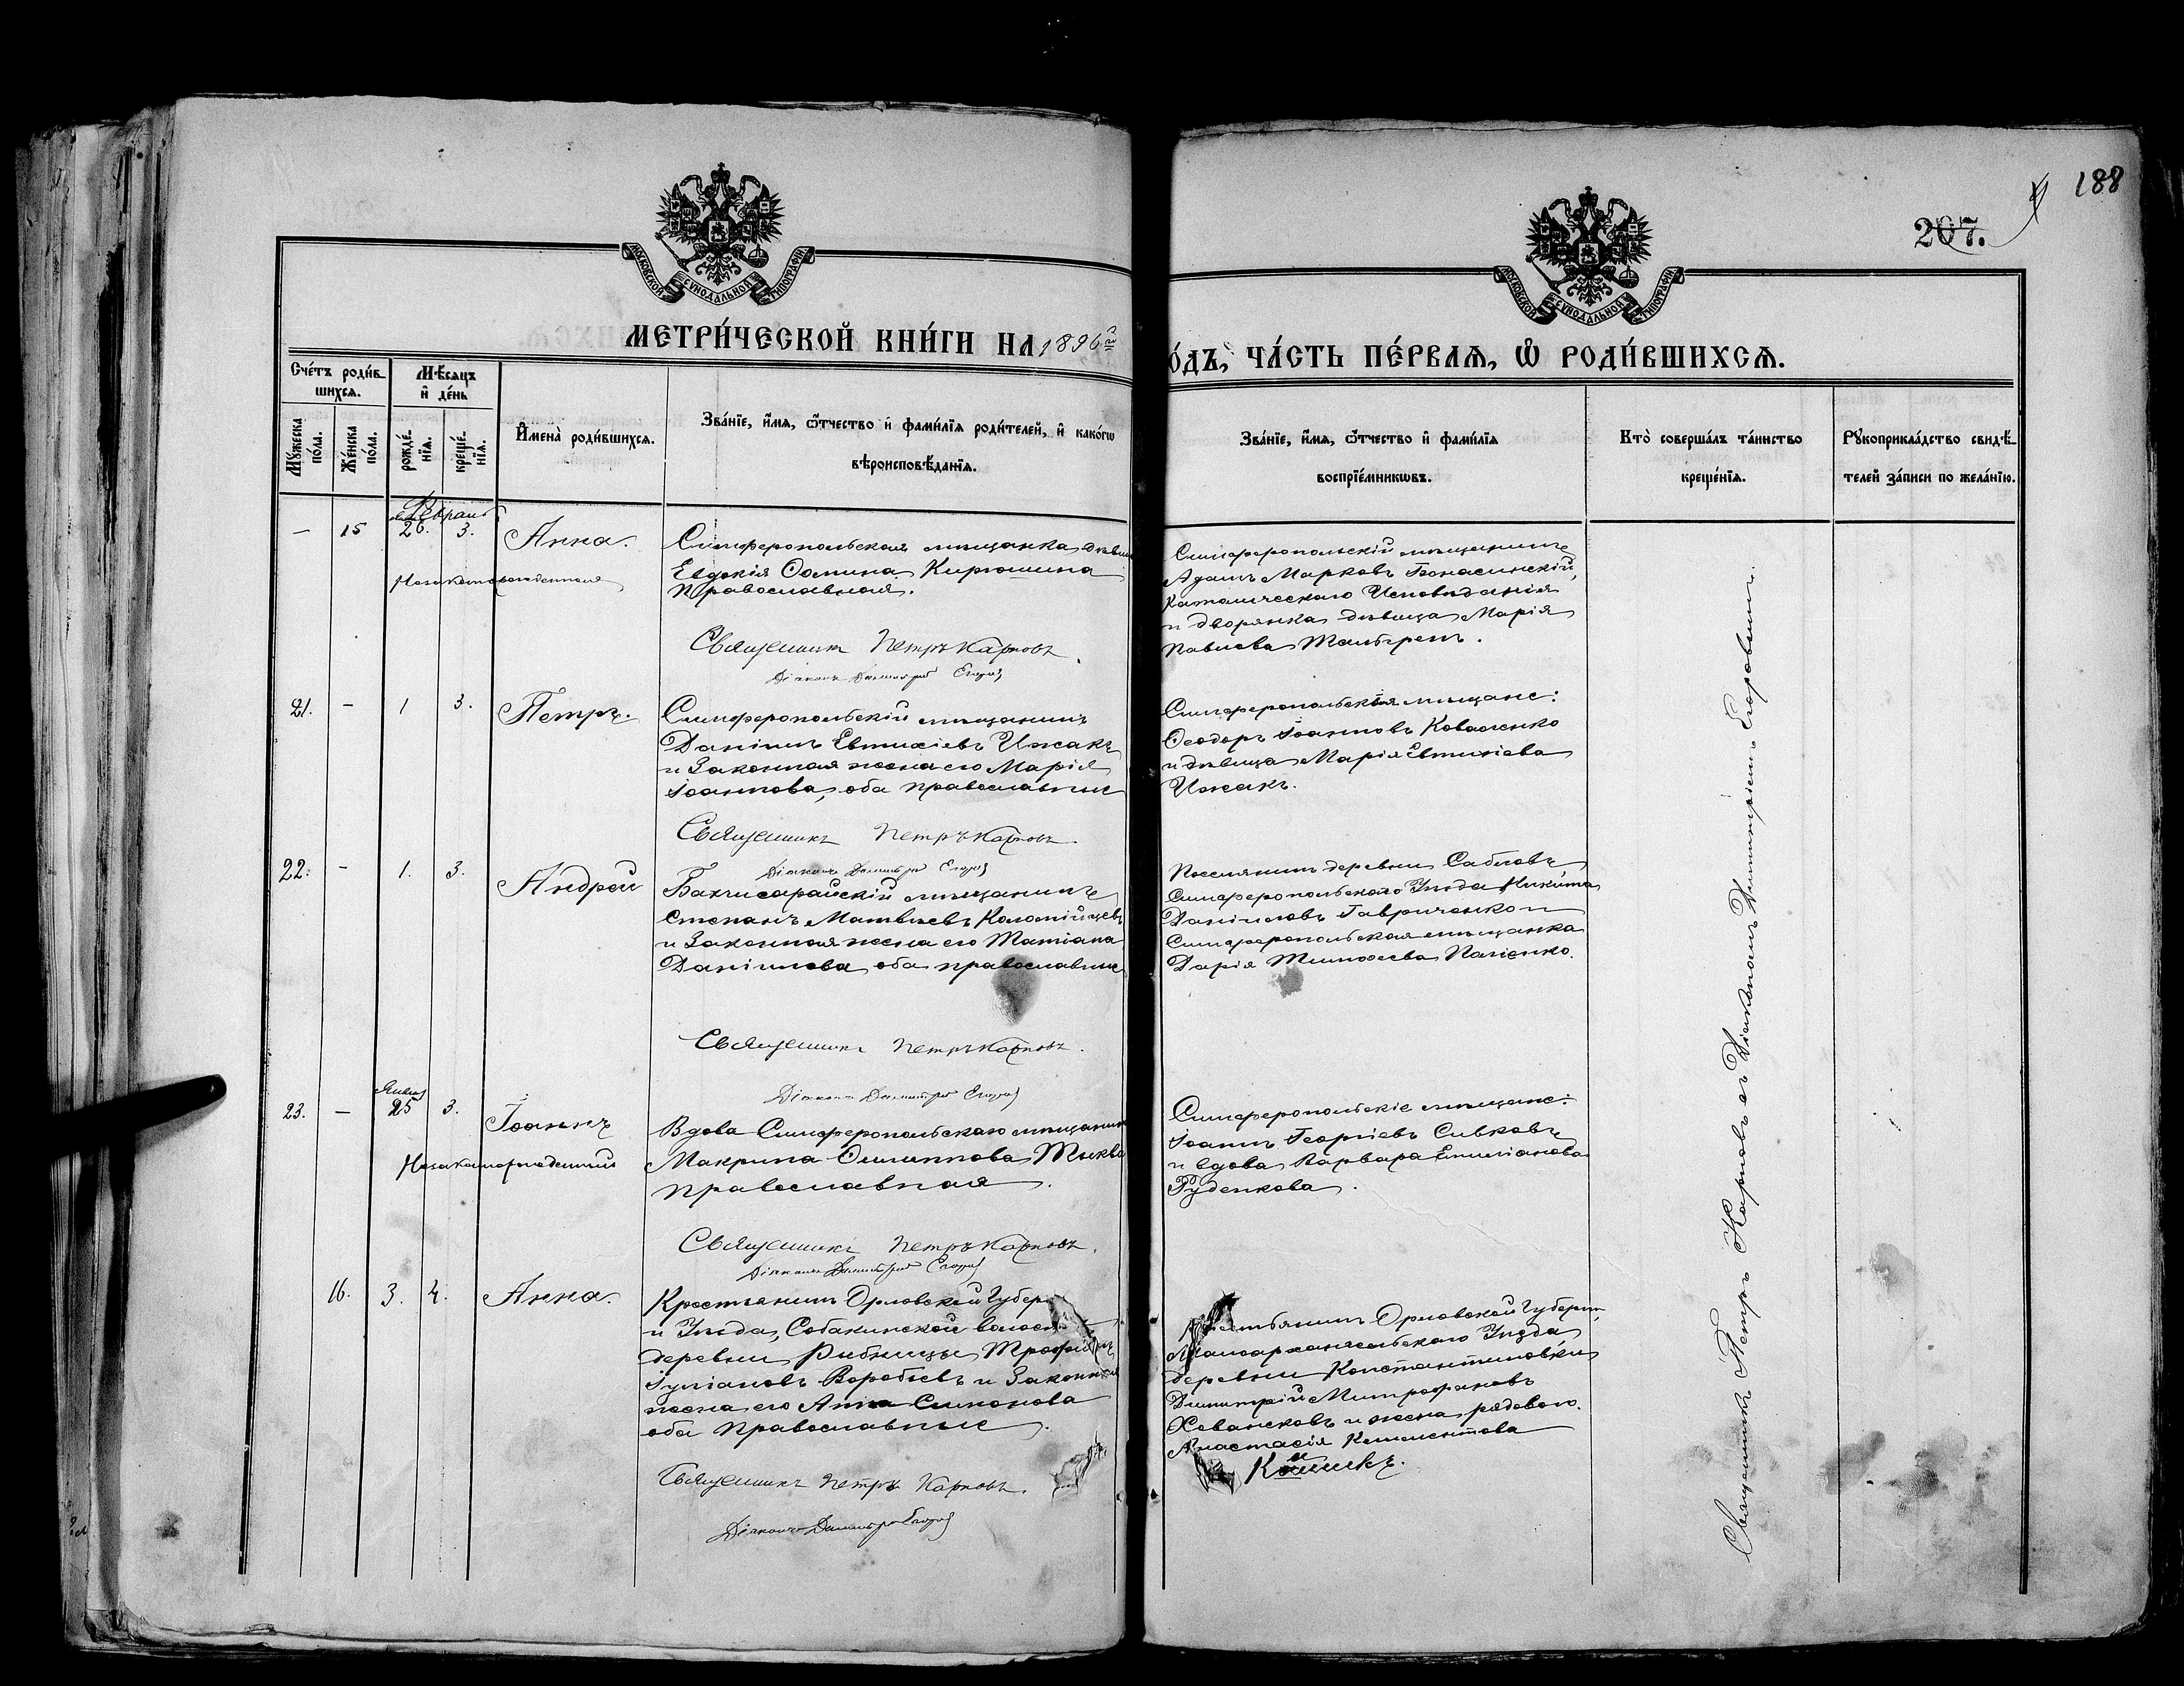 188
207.
МОСКОВСКОЙ СУНОДАЛЬНОЙ ТИПОГРАФІИ
МОСКОВСКОЙ СУНОДАЛЬНОЙ ТИПОГРАФІИ
МЕТРИ́ЧЕСКОЙ КНИ́ГИ НА 1896й
О́ДЪ, ЧА́СТЬ ПЕ́РВАѦ, Ѡ РОДИ́ВШИХСѦ.
Сче́тъ роди́в-
шихсѧ.
Мѣ́сѧцъ
и де́нь
Мꙋ́жеска по́ла.
Же́нска по́ла.
рожде́-нїѧ.
креще́-нїѧ.
И҆мена̀ роди́вшихсѧ.
Зва́нїе, и҆́мѧ, ѻ҆́тчество и҆ фами́лїѧ роди́телей, и҆ како́гѡ
вѣроисповѣ́данїѧ.
Зва́нїе, и҆́мѧ, ѻ҆́тчество и҆ фами́лїѧ
воспрїе́мникѡвъ.
Кто̀ соверша́лъ та́инство
креще́нїѧ.
Рꙋкоприкла́дство свидѣ́-
телей за́писи по жела́нїю.
Февраль
— 15 26. 3. Анна.
Незаконнорожденная
Симферопольская мѣщанка дѣвица
Евдокія Ѳомина Кирюшина
Православная.
Священникъ Петръ Карповъ.
Діаконъ Димитрій Егоровъ
Симферопольскій мѣщанинъ
Адамъ Марковъ
Католическаго Исповѣданія
и дворянка дѣвица Марія
Павлова
21. — 1 3. Петръ.
Симферопольскій мѣщанинъ
Даніилъ Евтихіевъ Ижакъ
и Законная жена его Марія
Іоаннова, оба православные
Священникъ Петръ Карповъ
Діаконъ Димитрій Егоровъ
Симферопольскія мѣщане:
Ѳеодоръ Іоанновъ Коваленко
и дѣвица Марія Евтихіева
Ижакъ.
22. — 1. 3. Андрей
Бахчисарайскій мѣщанинъ
Степанъ Матвѣевъ Коломійцевъ
и Законная жена его Татіана
Даніилова оба православные
Священникъ Петръ Карповъ.
Діаконъ Димитрій Егоровъ
Поселянинъ деревни Сабловъ
Симферопольскаго Уѣзда Никита
Даніиловъ Гавриченко и
Симферопольская мѣщанка
Дарія Тимоѳеева Паліенко.
Январь
23. — 25 3. Іоаннъ
Незаконнорожденный
Вдова Симферопольскаго мѣщанина
Макрина Филиппова
православная.
Священникъ Петръ Карповъ.
Діаконъ Димитрій Егоровъ
Симферопольскіе мѣщане:
Іоаннъ Георгіевъ Сивковъ
и вдова Варвара Емиліанова
Руденкова.
16. 3. 4. Анна.
Крестьянинъ Орловской Губер
и Уѣзда, Собакинской волости
деревни Рыбницы Трофимъ
Іуліановъ Воробьевъ и Законная
жена его Анна Симонова
оба Православные.
Священникъ Петръ Карповъ.
Діаконъ Димитрій Егоровъ
Крестьянинъ Орловской Губерніи,
Малоархангельскаго Уѣзда
деревни Константиновки
Димитрій Митрофановъ
Ховансковъ и жена рядового
Анастасія Климентова
Священникъ Петръ Карповъ съ Діакономъ Димитріемъ Егоровымъ.